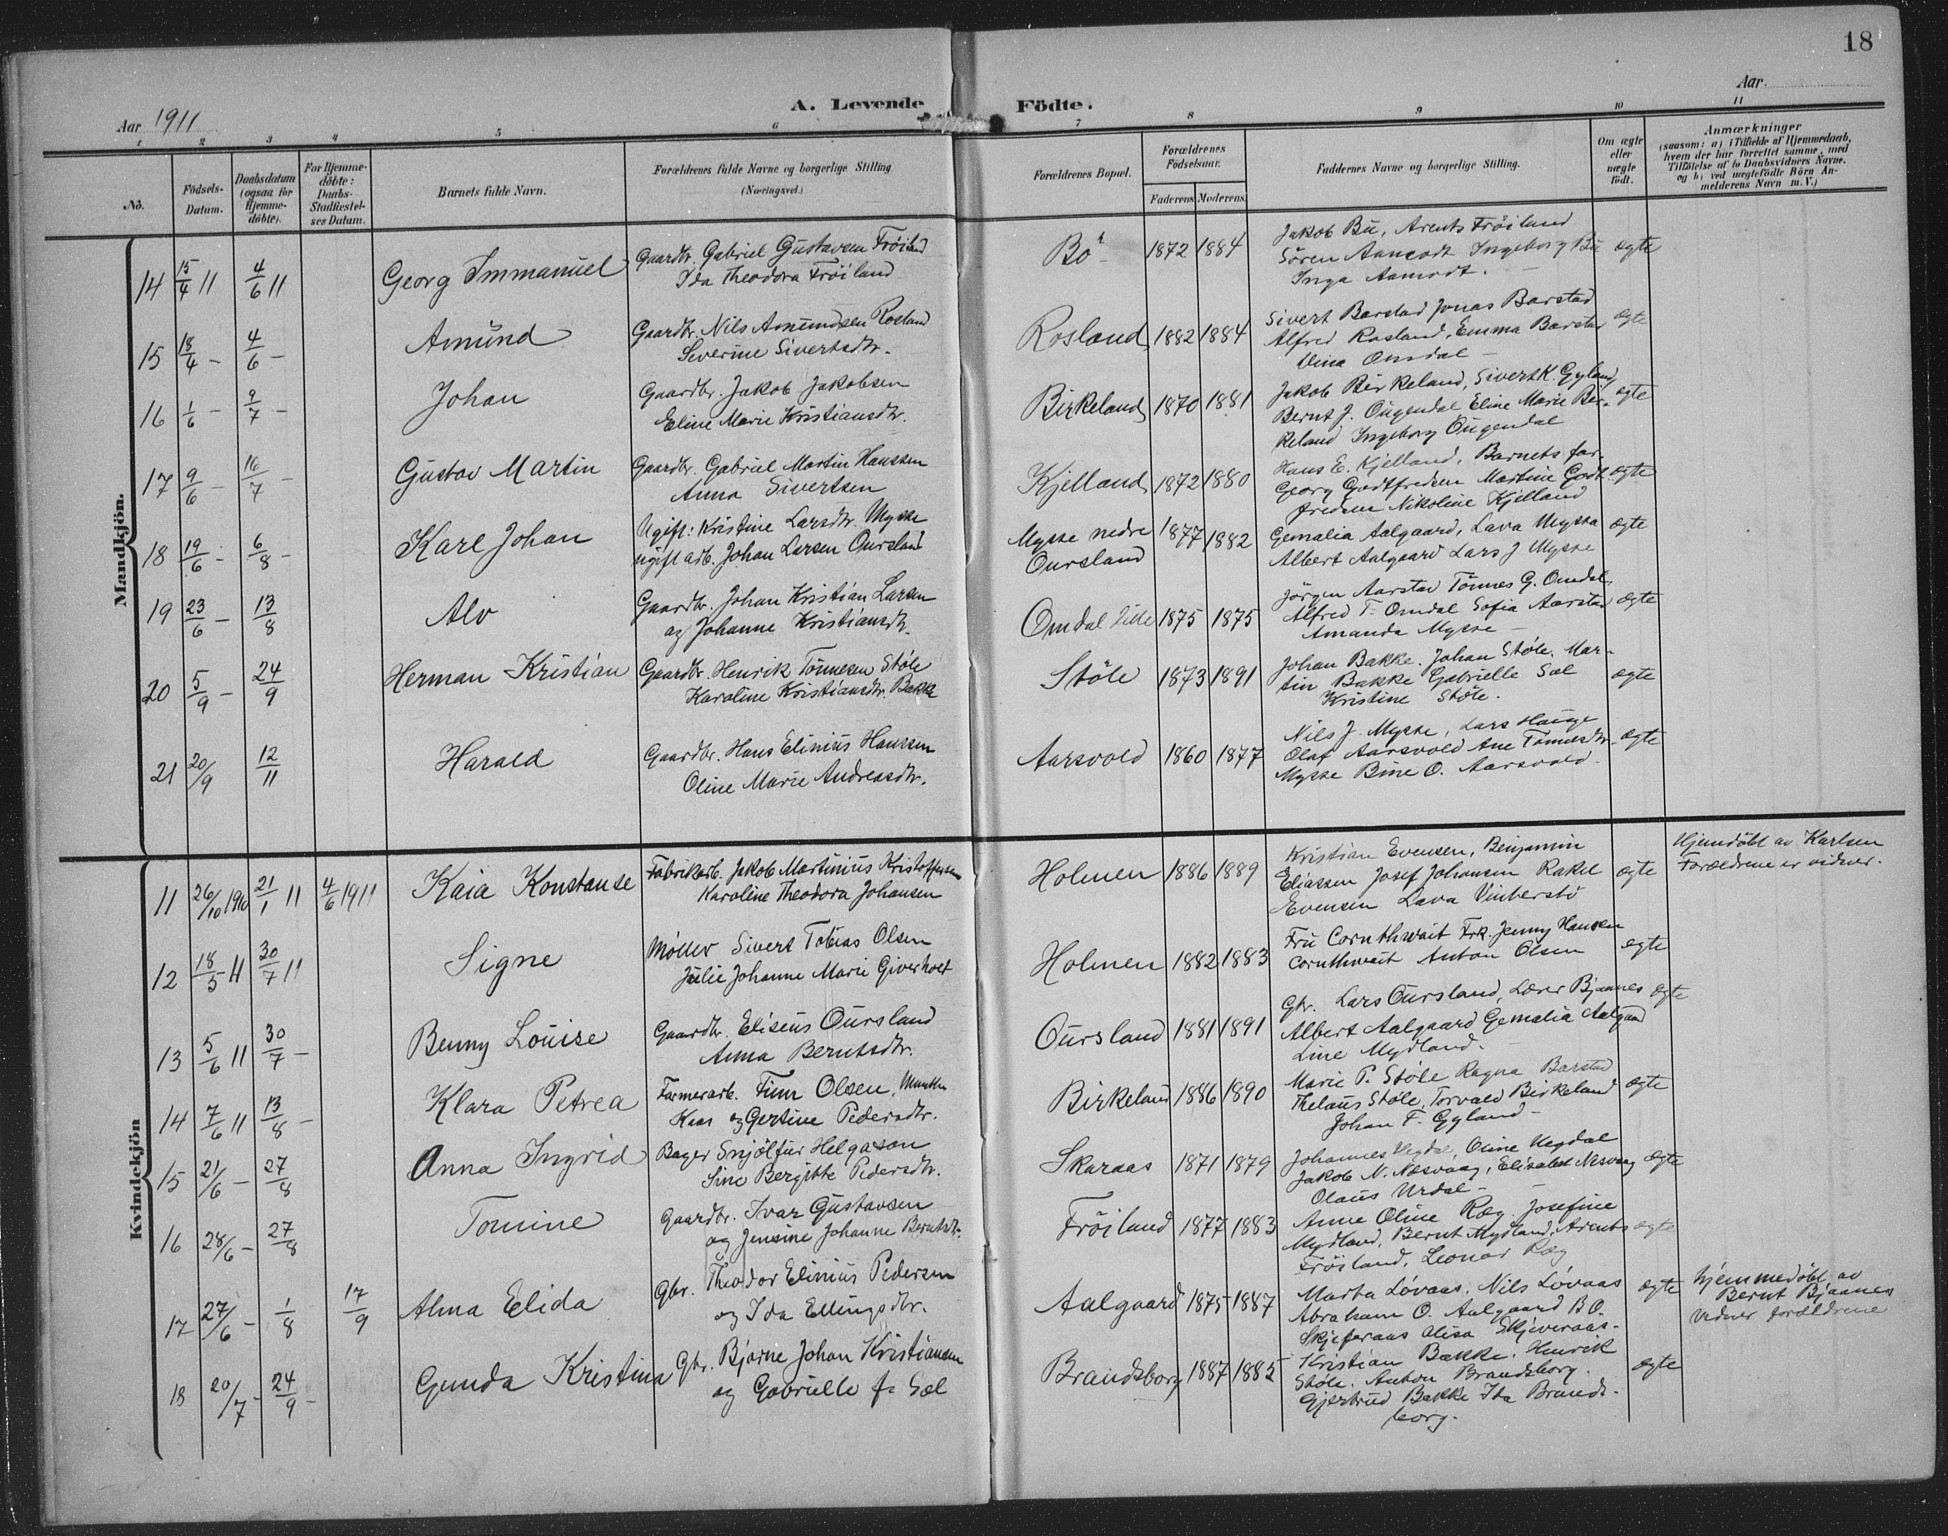 18
Aar 1911
A. Levende Födte.
Aar
1 2 3 4 5 6 7 8 9 10 11
No.
Födsels-
Datum.
Daabsdatum
(ogsaa for
Hjemme-
döbte).
For Hjemme-
döbte:
Daabs-
Stadfæstel-
ses Datum.
Barnets fulde Navn.
Forældrenes fulde Navne og borgerlige Stilling
(Næringsvei.)
Forældrenes Bopæl.
Forældrenes
Födselsaar.
Faderens Moderens
Faddernes Navne og borgerlige Stilling.
Om ægte
eller
uægte
födt.
Anmærkninger
(saasom: a) i Tilfælde af Hjemmedaab,
hvem der har forrettet samme, med
Tilföielse af to Daabsvidners Navne,
og b) ved uægtefödte Börn An-
melderens Navn m. V.)
Mandkjön.
14 15/4 11 4/6 11 Georg Immanuel Gaardbr. Gabriel Gustavsen Fröiland
Ida Theodora Fröiland
Bö 1872 1884 Jakob Bu, Arents Fröiland
Sören Aamodt Ingeborg Bu
Inga Aamodt. ægte
15 18/4 - 4/6 - Amund Gaardbr. Nils Asmundsen Rosland
Severine Sivertsdtr.
Rosland 1882 1884 Sivert Barstad Jonas Barstad
Alfred Rosland, Emma Barstad
Vina Omdal - ægte
16 1/6 - 9/7 - Johan Gaardbr. Jakob Jakobsen
Eline Marie Kristiansdtr.
Birkeland 1870 1881 Jakob Birkeland, Sivert K. Gyland
Bernt J. Ougendal Eline Marie Bir-
keland Ingeborg Ougendal ægte
17 9/6 - 16/7 - Gustav Martin Gaardbr. Gabriel Martin Hanssen
Anna Sivertsen
Kjelland 1872 1880 Hans E. Kjelland, Barnets far-
Georg Godtfredsen Martine Godt-
fredsen Nikoline Kjelland ægte
18 19/6 - 6/8 - Karl Johan Ugift: Kristine Larsdtr. Mysse
ugift arb. Johan Larsen Oursland
Mysse nedre
Oursland 1877 1882 Gemalia Aalgaard, Lava Myssa
Albert Aalgaard Lars J Mysse ægte
19 23/6 - 13/8 Alv Gaardbr. Johan Kristian Larsen
og Johanne Kristiansdtr.
Omdal 1875 1875 Jörgen Aarstad Tönnes G. Omdal,
Alfred T. Omdal Sofia Aarstad
Amanda Mysse - ægte
20 5/9 - 24/9 Herman Kristian Gaardbr. Henrik Tönnesen Støle
Karoline Kristiansdtr. Bakke
Støle 1873 1891 Johan Bakke. Johan Støle. Mar-
tin Bakke Gabrielle Sæl
Kristine Støle. ægte
21 20/9 12/11 Harald Gaardbr. Hans Elinius Hanssen
Oline Marie Andreasdtr.
Aarsvold 1860 1877 Nils J. Mysse, Lars Hauge
Olaf Aarsvold Ane Tönnesdtr.
Mysse Bine O. Aarsvold. ægte
Kvindekjön
11 26/10 1910 21/1 11 4/6 1911 Kaia Konstanse Fabrikarb. Jakob Martinius Kristoffersen
Karoline Theodora Johansen
Holmen 1886 1889 Kristian Evensen, Benjamin
Eliassen Josef Johansen Rakel
Evensen Lava Vinterstö ægte Hjemdöbt av Karlsen
Forældrene er vidner.
12 18/5 11 30/7 11 Signe Møller Sivert Tobias Olsen
Julie Johanne Marie Giverholt
Holmen 1882 1883 Fru Cornthwait Frk. Jenny Hansen
Cornthwait Anton Olsen ægte
13 5/6 11 30/7 - Benny Louise Gaardbr. Eliseus Oursland
Anna Berntsdtr.
Oursland 1881 1891 Gbr. Lars Oursland, Lærer Bjaanes
Albert Aalgaard Gemalia Aalgaard
Line Mydland. ægte
14 7/6 11 13/8 - Klara Petrea Farmerarb. Finn Olsen, Munthe
Kaas og Gertine Pedersdtr.
Birkeland 1886 1890 Marie P. Støle Ragna Barstad
Thelaus Støle, Torvald Birkeland
Johan F. Gyland - ægte
15 21/6 - 27/8 Anna Ingrid Bager Snjölfur Helgason
Sine Bergitte Pedersdtr.
Skaraas 1871 1879 Johannes Vegdal, Oline Vegdal
Jakob N. Næsvaag, Elisabet Nesvaag
Olaus Urdal - ægte
16 28/6 - 27/8 Tomine Gaardbr. Ivar Gustavsen
og Jensine Johanne Berntsdtr.
Fröiland 1877 1883 Anne Oline Ræg. Josefine
Mydland, Bernt Mydland, Arents
Fröiland, Leonar Ræg ægte
17 27/6 - 1/8 17/9 Alma Elida Gbr. Theodor Elinius Pedersen
og Ida Ellingsdtr.
Aalgaard 1875 1887 Marta Løvaas. Nils Løvaas
Abraham O. Aalgaard B O.
Skjeferaas Alisa Skjeveraas. ægte hjemmedöbt av
Bernt Bjaanes
Vidner forældrene
18 20/7 - 24/9 - Gunda Kristina Gbr. Bjarne Johan Kristiansen
og Gabrielle f. Sæl
Brandsborg 1887 1885 Kristian Bakke. Henrik
Støle. Anton Brandsborg.
Gjertrud Bakke Ida Brands-
borg. ægte